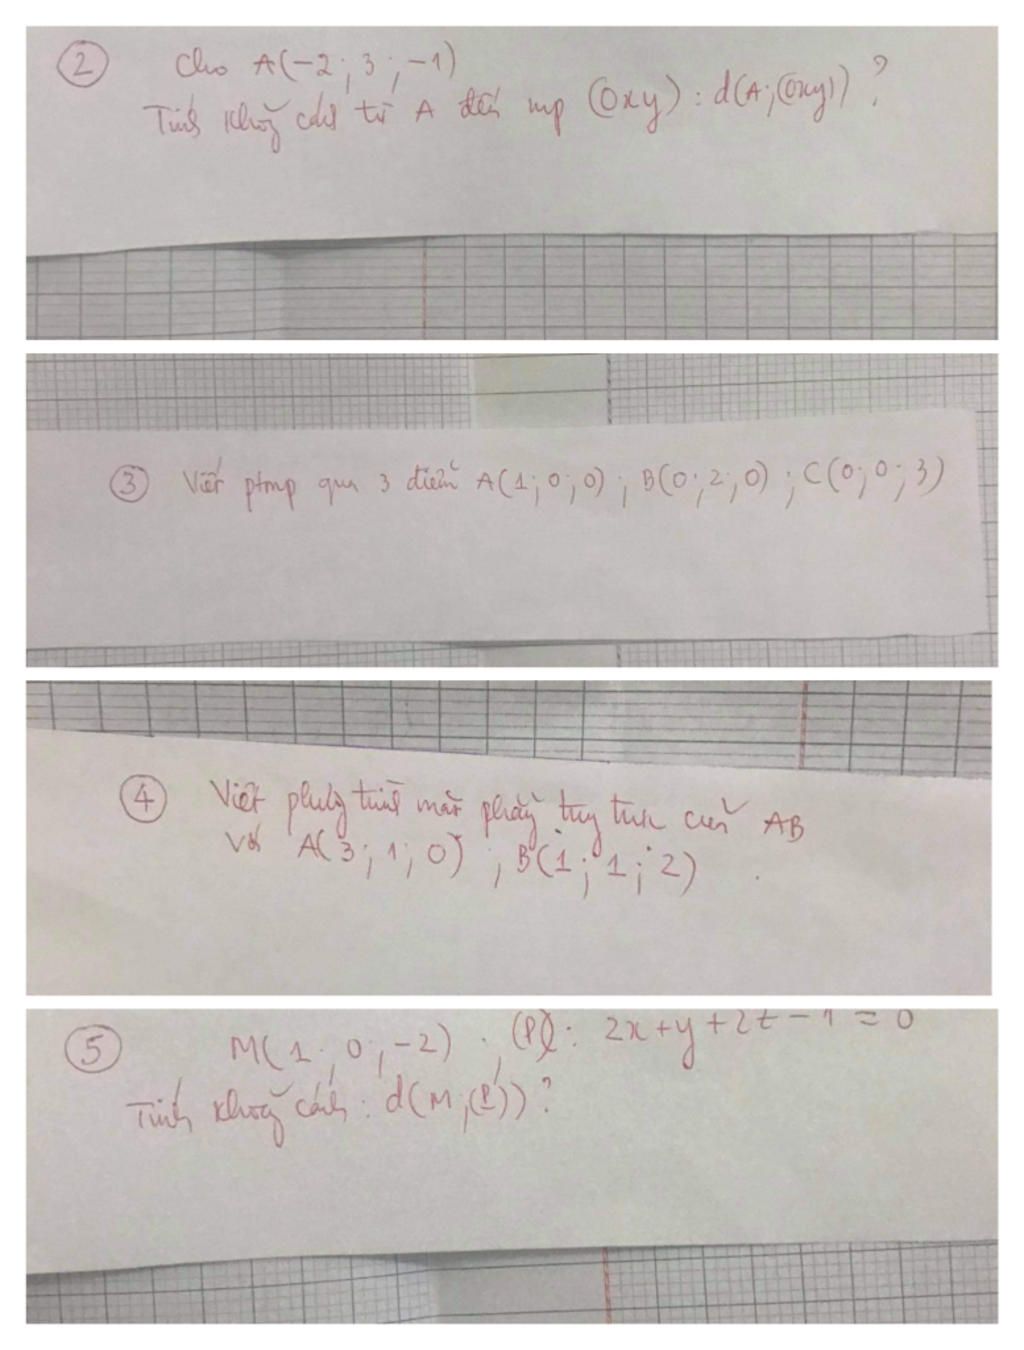 2 Cho A(-2; 3; -1)
Tính khoảng cách từ A đến mp (Oxy) : d(A;(Oxy)) ?
3 Viết ptmp qua 3 điểm A(1; 0; 0) ; B(0; 2; 0) ; C(0; 0; 3)
4 Viết phương trình mặt phẳng trung trực của AB
Với A(3; 1; 0) ; B(1; 1; 2)
5 M(1; 0; -2) ; (P): 2x+y+2z-1=0
Tính khoảng cách : d(M;(P)) ?